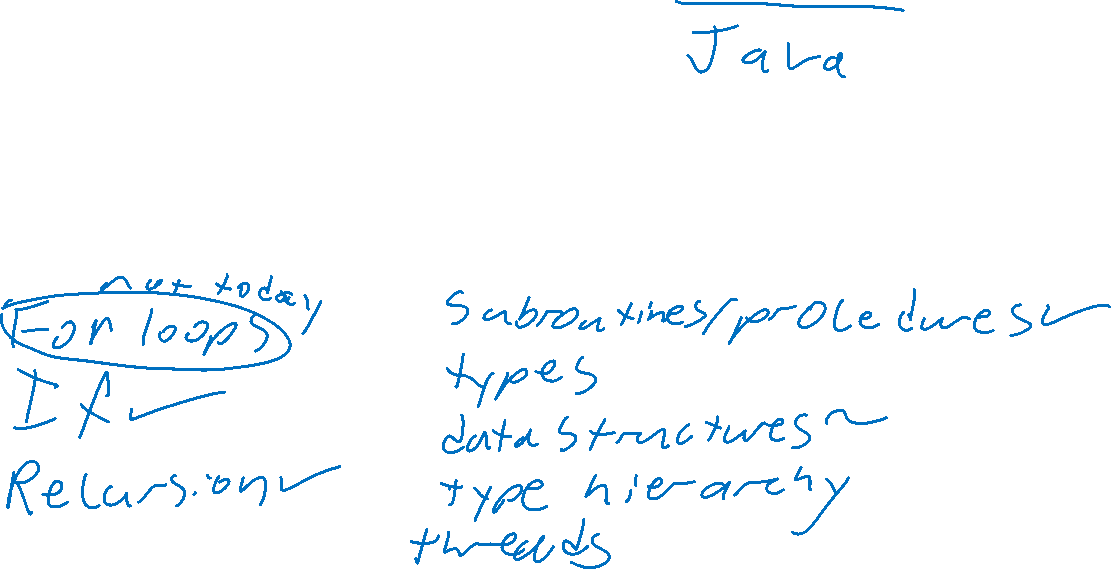 Java
not today
For loops
If
Recursion
Subroutines/procedures
types
data structures
type hierarchy
threads